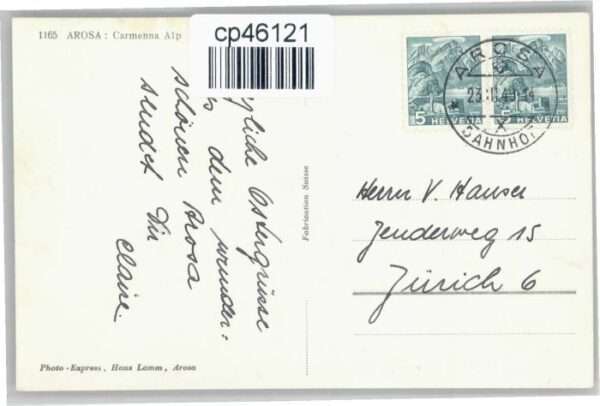 1165 AROSA: Carmenna Alp
cp46121
AROSA
BAHNHOF
5 HELVETIA
HELVETIA
liche Ostergrüsse
dem wunder:
schönen Arosa
sendet Dir
Claire.
Fabrication Suisse
Herrn V. Hauser
Jenderweg 15
Zürich 6
Photo-Express, Hans Lamm, Arosa